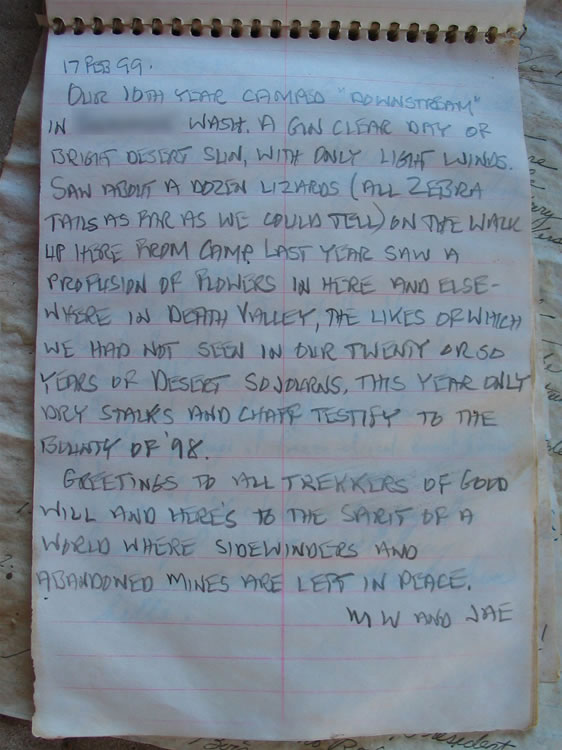 17 FEB 99.
OUR 10TH YEAR CAMPED "DOWNSTREAM"
IN WASH. A GIN CLEAR DAY OF
BRIGHT DESERT SUN, WITH ONLY LIGHT WINDS.
SAW ABOUT A DOZEN LIZARDS (ALL ZEBRA
TAILS AS FAR AS WE COULD TELL) ON THE WALK
UP HERE FROM CAMP. LAST YEAR SAW A
PROFUSION OF FLOWERS IN HERE AND ELSE-
WHERE IN DEATH VALLEY, THE LIKES OF WHICH
WE HAD NOT SEEN IN OUR TWENTY OR SO
YEARS OF DESERT SOJOURNS. THIS YEAR ONLY
DRY STALKS AND CHAFF TESTIFY TO THE
BOUNTY OF '98.
GREETINGS TO ALL TREKKERS OF GOOD
WILL AND HERE'S TO THE SPIRIT OF A
WORLD WHERE SIDEWINDERS AND
ABANDONED MINES ARE LEFT IN PEACE.
MW AND JAE